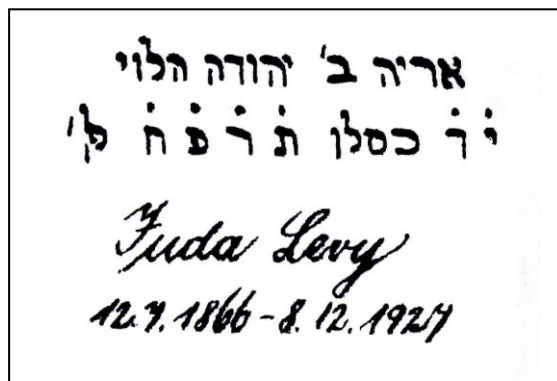 אריה ב' יהודה הלוי
יׄ דׄ כסלו תׄ רׄ פׄ חׄ
Juda Levy
12.7.1866 - 8.12.1927